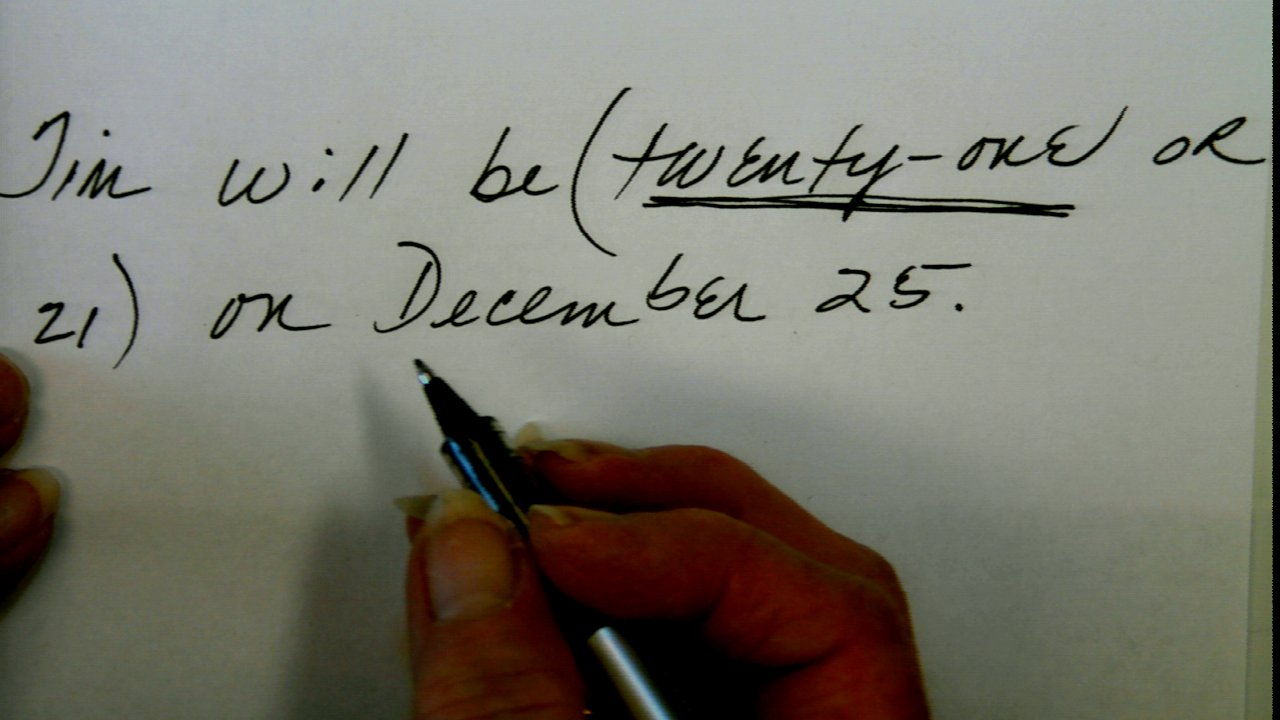 Jim will be (twenty-one or
21) on December 25.